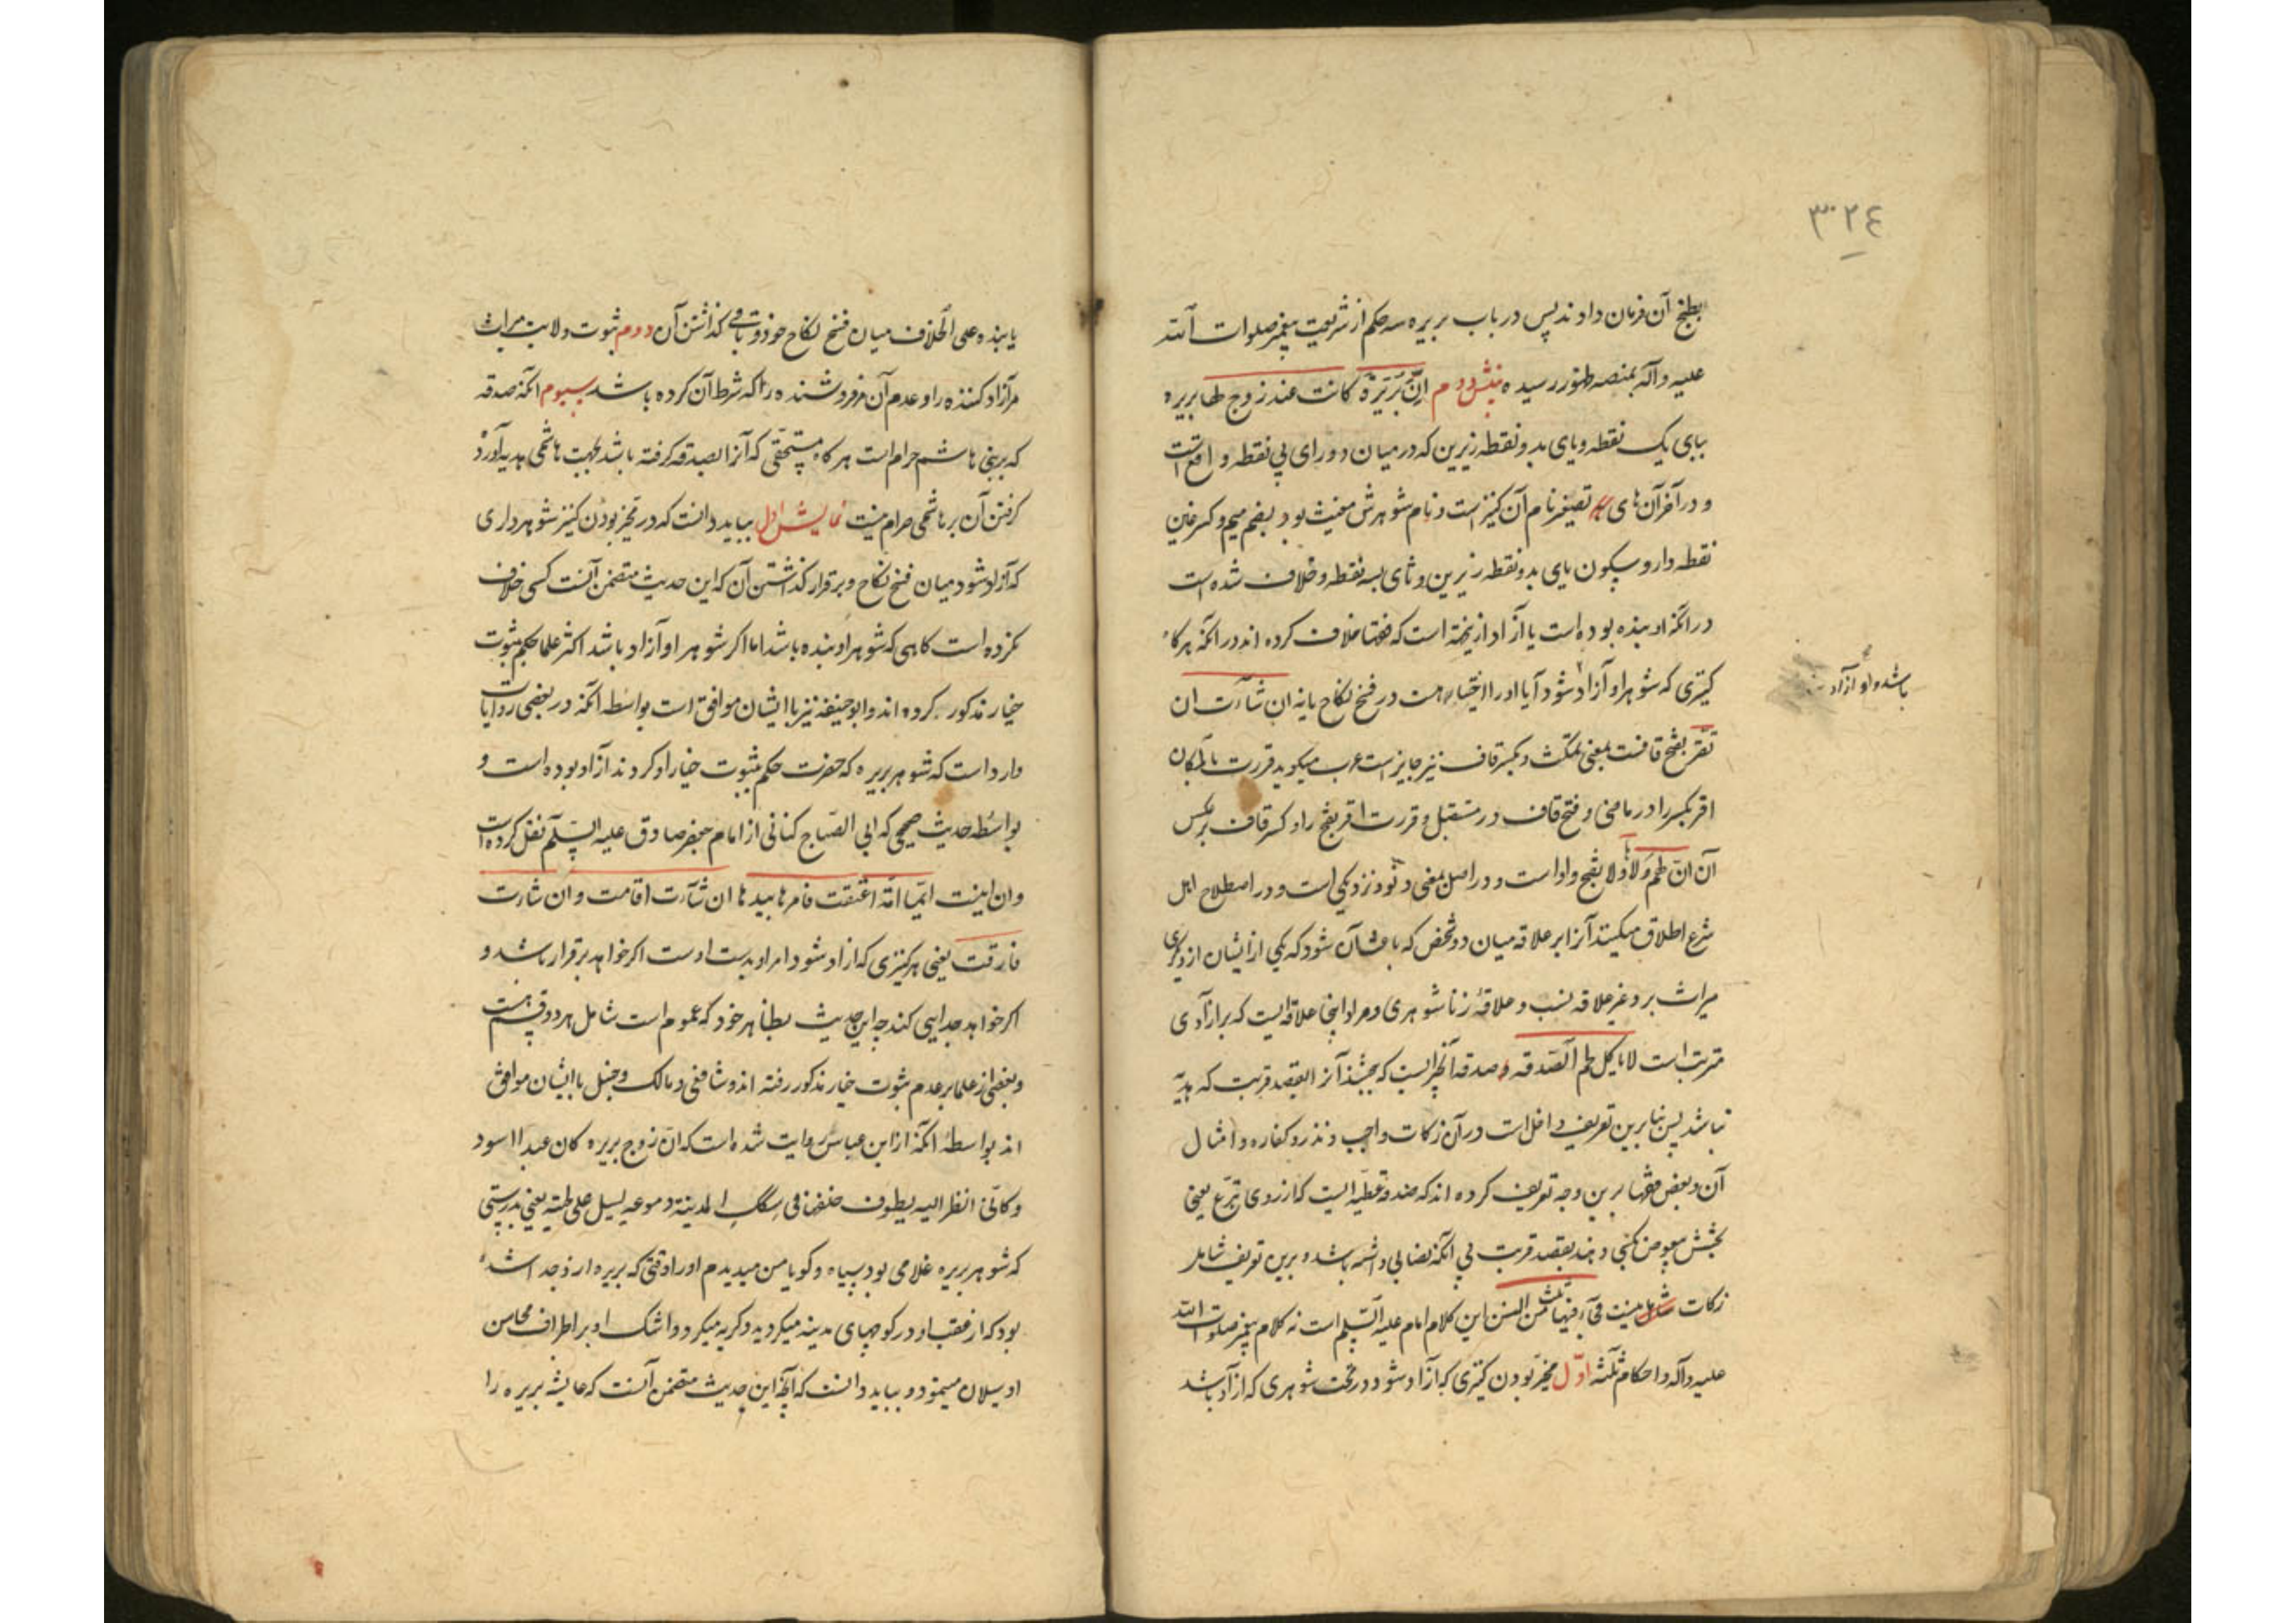 ٣٢٤
بطبخ آن فرمان دادند پس در باب بریره سه حکم از شریعت پیغمبر صلوات الله
علیه وآله بمنصه ظهور رسیده بینش دوم ان بریرة کانت عند زوج لها بریره
ببای یک نقطه ویای بدو نقطه زیرین که در میان دو رای بی نقطه واقع است
و در آخر آن های تصغیر نام آن کنیز است و نام شوهرش مغیث بود بضم میم وکسر غین
نقطه دار وسکون یای بدو نقطه زیرین و ثای بسه نقطه وخلاف شده است
در آنکه او بنده بوده است یا آزاد ازینجهة است که فقها خلاف کرده اند در آنکه هرکاه
کنیزی که شوهر او آزاد شود آیا او را اختیار هست در فسخ نکاح یا نه ان شاءت ان
باشد واو آزاد
تقر بفتح قافست بمعنی تمکث و بکسر قاف نیز جایز است عرب میکوید قررت بالمکان
اقر بکسر را در ماضی و فتح قاف در مستقبل و قررت اقر بفتح را و کسر قاف بر عکس
آن ان لهم ولاءها ولا بفتح واو است و در اصل بمعنی دنو و نزدیکی است و در اصطلاح اهل
شرع اطلاق میکنند آنرا بر علاقه میان دو شخص که باعث آن شود که یکی از ایشان از دیگری
میراث برد غیر علاقه نسب و علاقۀ زناشوهری ومراد اینجا علاقه ایست که بر آزادی
مترتب است لا یاکل لهم الصدقه و صدقه آنچیزیست که بخشند آنرا بقصد قربت که هدیه
نباشد پس بنا برین تعریف داخل است در آن زکات واجب و نذر و کفاره و امثال
آن وبعض فقها برین وجه تعریف کرده اند که صدقه عطیه ایست که از روی تبرع یعنی
بخشش بیعوض کنی دهند بقصد قربت بی آنکه نصابی داشته باشد و برین تعریف شامل
زکات نیست فجری فیها ثلث من السنن این کلام امام علیه السلم است نه کلام پیغمبر صلوات الله
علیه وآله واحکام ثلثه اول مخیر بودن کنیزی که آزاد شود در تحت شوهری که آزاد باشد
یا بنده علی الخلاف میان فسخ نکاح خود و باقی کذاشتن آن دوم ثبوت ولایت میراث
مر آزاد کننده را و عدم آن مر فروشنده را که شرط آن کرده باشد سیوم آنکه صدقه
که بر بنی هاشم حرام است هر کاه مستحقی که آنرا بصدقه کرفته باشد بجهت هاشمی هدیه آورد
کرفتن آن بر هاشمی حرام نیست نمایش اول بباید دانست که در مخیر بودن کنیز شوهر داری
که آزاد شود میان فسخ نکاح وبرقرار کذاشتن آن که این حدیث متضمن آنست کسی خلاف
نکرده است کاهی که شوهر او بنده باشد اما اکر شوهر او آزاد باشد اکثر علما حکم بثبوت
خیار مذکور کرده اند وابو حنیفه نیز با ایشان موافق است بواسطه آنکه در بعضی روایات
وارد است که شوهر بریره که حضرت حکم بثبوت خیار او کردند آزاد بوده است و
بواسطه حدیث صحیحی که ابی الصباح کنانی از امام جعفر صادق علیه السلم نقل کرده است
وان اینست ایما امة اعتقت فامرها بیدها ان شاءت اقامت وان شاءت
فارقت یعنی هر کنیزی که آزاد شود امر او بدست اوست اکر خواهد برقرار باشد و
اکر خواهد جدایی کند چه این حدیث بظاهر خود که عموم است شامل هر دو قسم هست
وبعضی از علما بر عدم ثبوت خیار مذکور رفته اند وشافعی و مالک وحنبل با ایشان موافق
اند بواسطۀ آنکه از ابن عباس روایت شده است که ان زوج بریره کان عبدا اسود
وکانی انظر الیه یطوف خلفها فی سکک المدینة ودموعه یسیل علی لحیته یعنی بدرستی
که شوهر بریره غلامی بود سیاه وکویا من میدیدم اورا وقتی که بریره ازو جدا شده
بود که از عقب او در کوچهای مدینه میکردید وکریه میکرد واشک او بر اطراف محاسن
او سیلان مینمود و بباید دانست که آنچه این حدیث متضمن آنست که عایشه بریره را